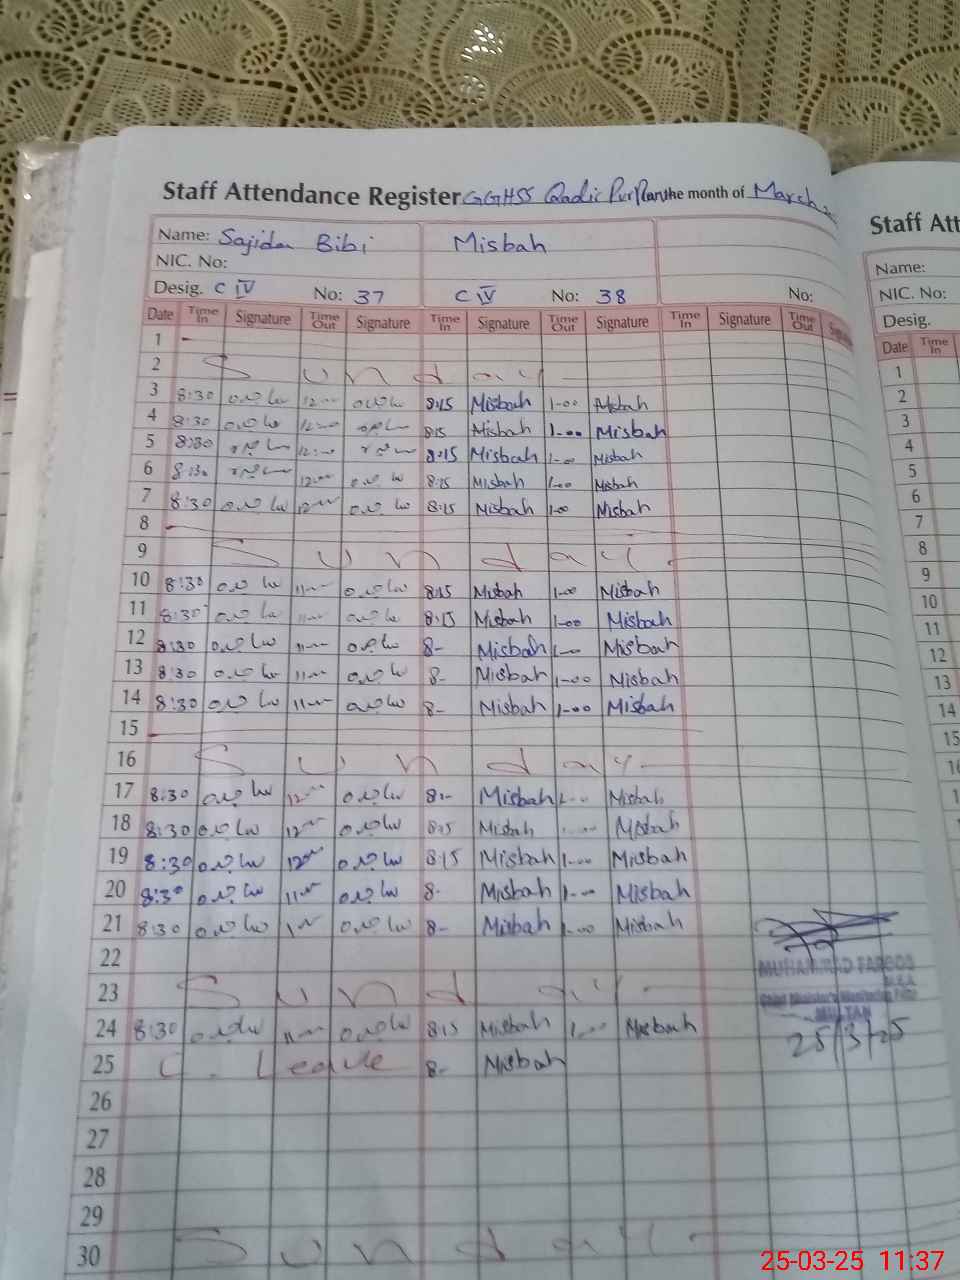 Staff Attendance Register GGHSS Qadir Pur Ran the month of March
Name: Sajida Bibi Misbah
NIC. No:
Desig. C IV No: 37 C IV No: 38 No:
Date Time In Signature Time Out Signature Time In Signature Time Out Signature Time In Signature Time Out
1
2 Sunday
3 8:30 ساجدہ 12:00 ساجدہ 8:15 Misbah 1-00 Misbah
4 8:30 ساجدہ 12:00 ساجدہ 8:15 Misbah 1-00 Misbah
5 8:30 ساجدہ 12:00 ساجدہ 8:15 Misbah 1-00 Misbah
6 8:30 ساجدہ 12:00 ساجدہ 8:15 Misbah 1-00 Misbah
7 8:30 ساجدہ 12:00 ساجدہ 8:15 Misbah 1-00 Misbah
8
9 Sunday
10 8:30 ساجدہ 11:00 ساجدہ 8:15 Misbah 1-00 Misbah
11 8:30 ساجدہ 11:00 ساجدہ 8:15 Misbah 1-00 Misbah
12 8:30 ساجدہ 11:00 ساجدہ 8- Misbah 1-00 Misbah
13 8:30 ساجدہ 11:00 ساجدہ 8- Misbah 1-00 Misbah
14 8:30 ساجدہ 11:00 ساجدہ 8- Misbah 1-00 Misbah
15
16 Sunday
17 8:30 ساجدہ 12:00 ساجدہ 8:- Misbah 1-00 Misbah
18 8:30 ساجدہ 12:00 ساجدہ 8:15 Misbah 1-00 Misbah
19 8:30 ساجدہ 12:00 ساجدہ 8:15 Misbah 1-00 Misbah
20 8:30 ساجدہ 11:00 ساجدہ 8- Misbah 1-00 Misbah
21 8:30 ساجدہ ساجدہ 8- Misbah 1-00 Misbah
22
23 Sunday
24 8:30 ساجدہ 11:00 ساجدہ 8:15 Misbah 1-00 Misbah
25 C. Leave 8- Misbah
26
27
28
29
30 Sunday
MUHAMMAD FAROOQ
MULTAN
25/3/25
Staff Att
Name:
NIC. No:
Desig.
Date Time In
1
2
3
4
5
6
7
8
9
10
11
12
13
14
15
16
25-03-25 11:37